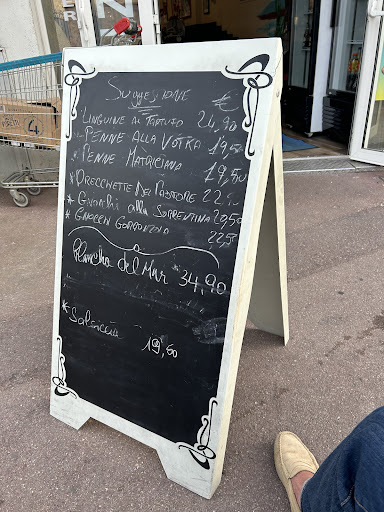 Suggesione €
Linguine al Tartufo 24,90
Penne alla Votka 19,50
Penne Matriciano 19,50
* Orecchiette Del Pastore 22
* Gnocchi alla Sorrentina 20,50
* Gnocchi Gorgonzola 22,5
Plancha del Mar 34,90
* Salsiccia 19,50
4